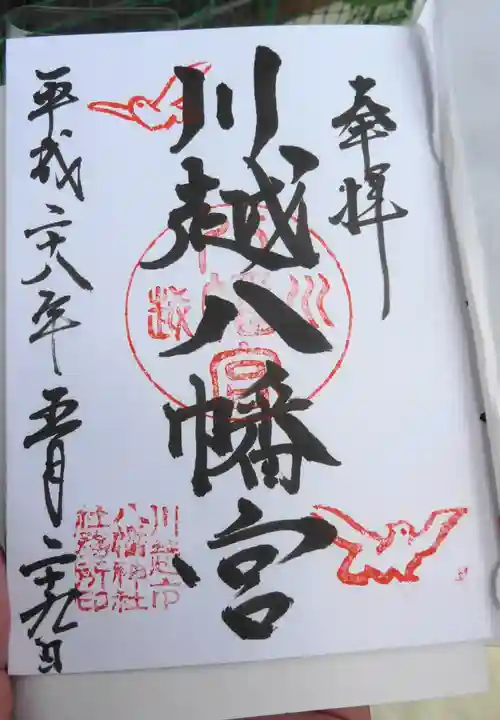 奉拝
川越八幡宮
平成二十八年五月二十九日
川越市
八幡神社
社務所印